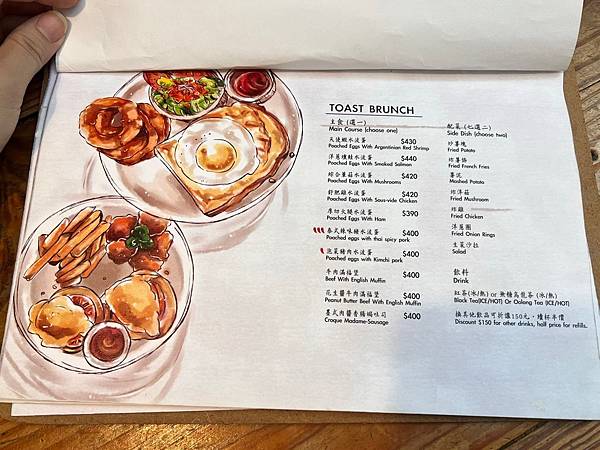 TOAST BRUNCH
主食 (選一)
Main Course (choose one)
天使蝦水波蛋 $430
Poached Eggs With Argentinian Red Shrimp
洋蔥燻鮭水波蛋 $440
Poached Eggs With Smoked Salmon
綜合蕈菇水波蛋 $420
Poached Eggs With Mushrooms
舒肥雞水波蛋 $420
Poached Eggs With Sous-vide Chicken
厚切火腿水波蛋 $390
Poached Eggs With Ham
泰式辣味豬水波蛋 $400
Poached eggs with thai spicy pork
泡菜豬肉水波蛋 $400
Poached eggs with Kimchi pork
牛肉滿福堡 $400
Beef With English Muffin
花生醬牛肉滿福堡 $400
Peanut Butter Beef With English Muffin
墨式肉醬香腸嫩吐司 $400
Croque Madame-Sausage
配菜 (七選二)
Side Dish (choose two)
炒薯塊
Fried Potato
炸薯條
Fried French Fries
薯泥
Mashed Potato
炸洋菇
Fried Mushroom
炸雞
Fried Chicken
洋蔥圈
Fried Onion Rings
生菜沙拉
Salad
飲料
Drink
紅茶(冰/熱) or 無糖烏龍茶 (冰/熱)
Black Tea(ICE/HOT) Or Oolong Tea (ICE/HOT)
換其他飲品可折讓150元，續杯半價
Discount $150 for other drinks, half price for refills.